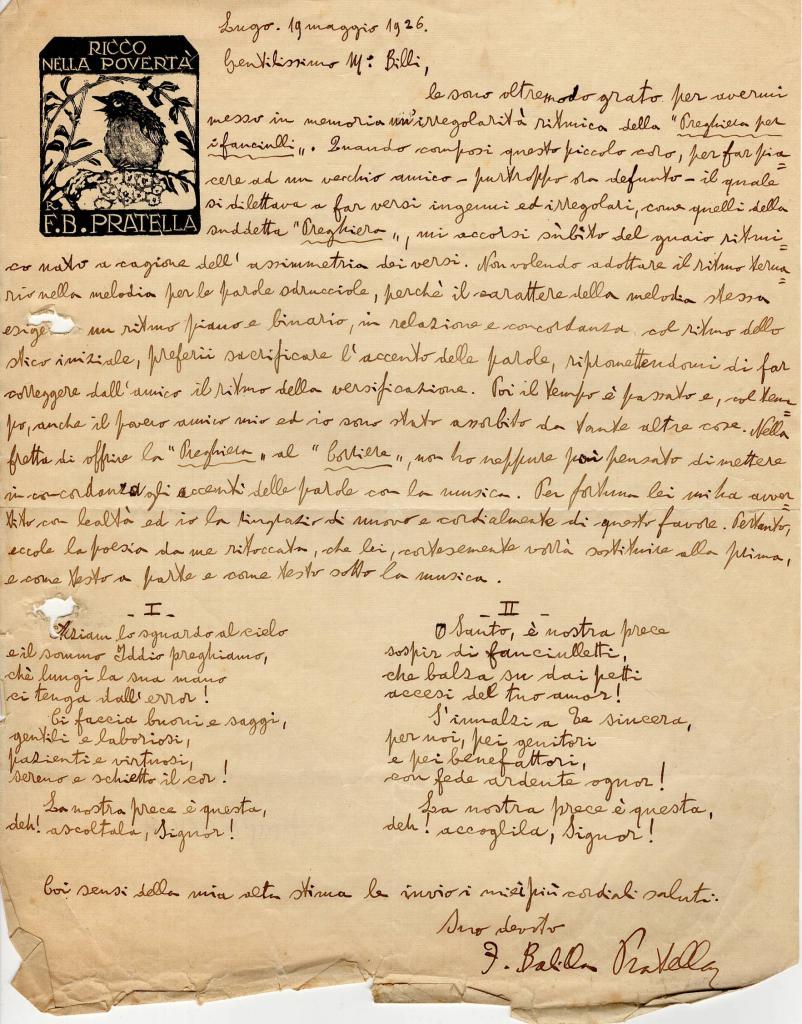 Lugo. 19 maggio 1926.
RICCO
NELLA POVERTÀ
F. B. PRATELLA
Gentilissimo M.° Billi,
le sono oltremodo grato per avermi
messo in memoria un'irregolarità ritmica della "Preghiera per
i fanciulli„. Quando composi questo piccolo coro, per far pia=
cere ad un vecchio amico – purtroppo ora defunto – il quale
si dilettava a far versi ingenui ed irregolari, come quelli della
suddetta "Preghiera„, mi accorsi sùbito del guaio ritmi=
co nato a cagione dell'assimmetria dei versi. Non volendo adottare il ritmo terna=
rio nella melodia per le parole sdrucciole, perchè il carattere della melodia stessa
esige un ritmo piano e binario, in relazione e concordanza col ritmo dello
stico iniziale, preferii sacrificare l'accento delle parole, ripromettendomi di far
correggere dall'amico il ritmo della versificazione. Poi il tempo è passato e, col tem=
po, anche il povero amico mio ed io sono stato assorbito da tante altre cose. Nella
fretta di offrire la "Preghiera„ al "Corriere„, non ho neppure più pensato di mettere
in concordanza gli accenti delle parole con la musica. Per fortuna lei mi ha avver=
tito con lealtà ed io la ringrazio di nuovo e cordialmente di questo favore. Pertanto,
eccole la poesia da me ritoccata, che lei, cortesemente vorrà sostituire alla prima,
e come testo a parte e come testo sotto la musica.
– I –
Alziam lo sguardo al cielo
e il sommo Iddio preghiamo,
chè lungi la sua mano
ci tenga dall'error!
Ci faccia buoni e saggi,
gentili e laboriosi,
pazienti e virtuosi,
sereno e schietto il cor!
La nostra prece è questa,
deh! ascoltala, Signor!
– II –
O Santo, è nostra prece
sospir di fanciulletti,
che balza su dai petti
accesi del tuo amor!
S'innalzi a Te sincera,
per noi, pei genitori
e pei benefattori,
con fede ardente ognor!
La nostra prece è questa,
deh! accoglila, Signor!
Coi sensi della mia alta stima le invio i miei più cordiali saluti.
Suo devoto
F. Balilla Pratella